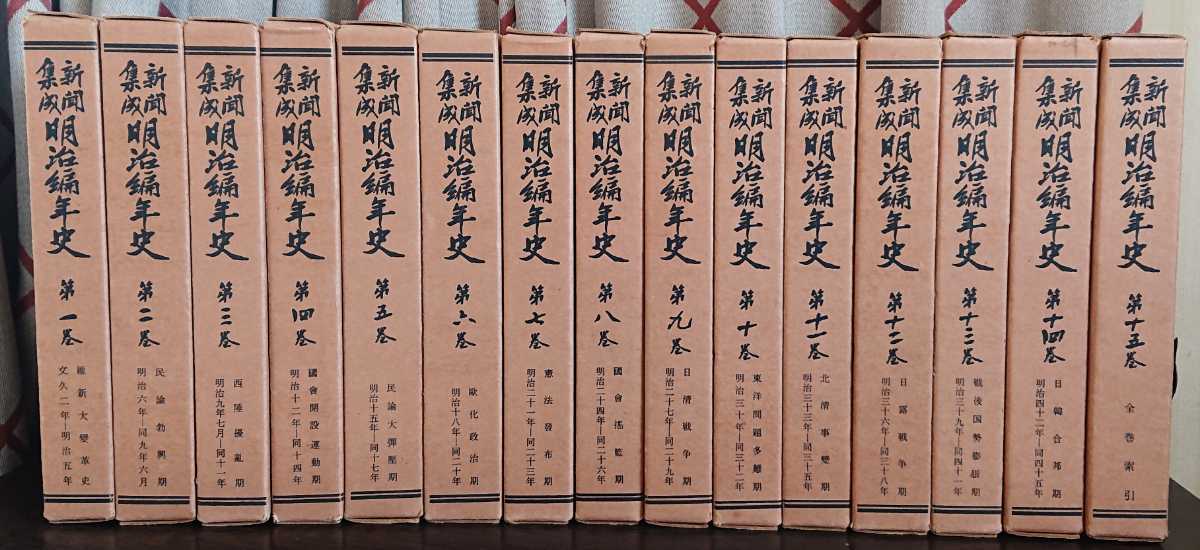 新聞集成
明治編年史
第一巻
維新大變革史
文久二年―明治五年
新聞集成
明治編年史
第二巻
民論勃興期
明治六年―同九年六月
新聞集成
明治編年史
第三巻
西陲擾亂期
明治九年七月―同十一年
新聞集成
明治編年史
第四巻
國會開設運動期
明治十二年―同十四年
新聞集成
明治編年史
第五巻
民論大彈壓期
明治十五年―同十七年
新聞集成
明治編年史
第六巻
歐化政治期
明治十八年―同二十年
新聞集成
明治編年史
第七巻
憲法發布期
明治二十一年―同二十三年
新聞集成
明治編年史
第八巻
國會搖籃期
明治二十四年―同二十六年
新聞集成
明治編年史
第九巻
日清戦争期
明治二十七年―同二十九年
新聞集成
明治編年史
第十巻
東洋問題多難期
明治三十年―同三十二年
新聞集成
明治編年史
第十一巻
北清事變期
明治三十三年―同三十五年
新聞集成
明治編年史
第十二巻
日露戦争期
明治三十六年―同三十八年
新聞集成
明治編年史
第十三巻
戦後国勢膨脹期
明治三十九年―同四十一年
新聞集成
明治編年史
第十四巻
日韓合邦期
明治四十二年―同四十五年
新聞集成
明治編年史
第十五巻
全巻索引